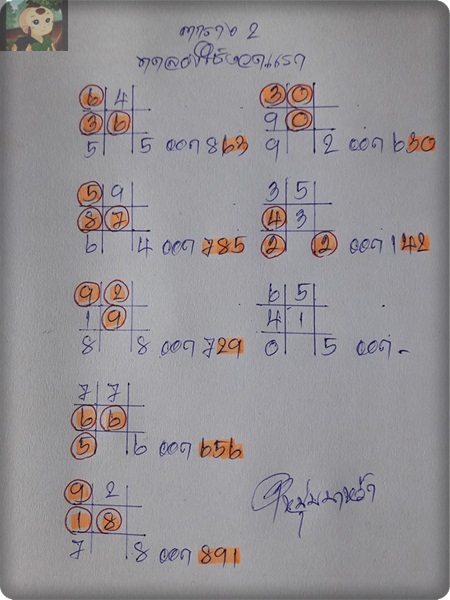 ตาราง 2
ทดลองใช้งวดแรก
6 4
3 6
5 5 ออก 863
5 9
8 7
6 4 ออก 785
9 2
1 9
8 8 ออก 729
7 7
6 6
5 6 ออก 656
9 2
1 8
7 8 ออก 891
3 0
9 0
9 2 ออก 630
3 5
4 3
2 2 ออก 142
6 5
4 1
0 5 ออก -